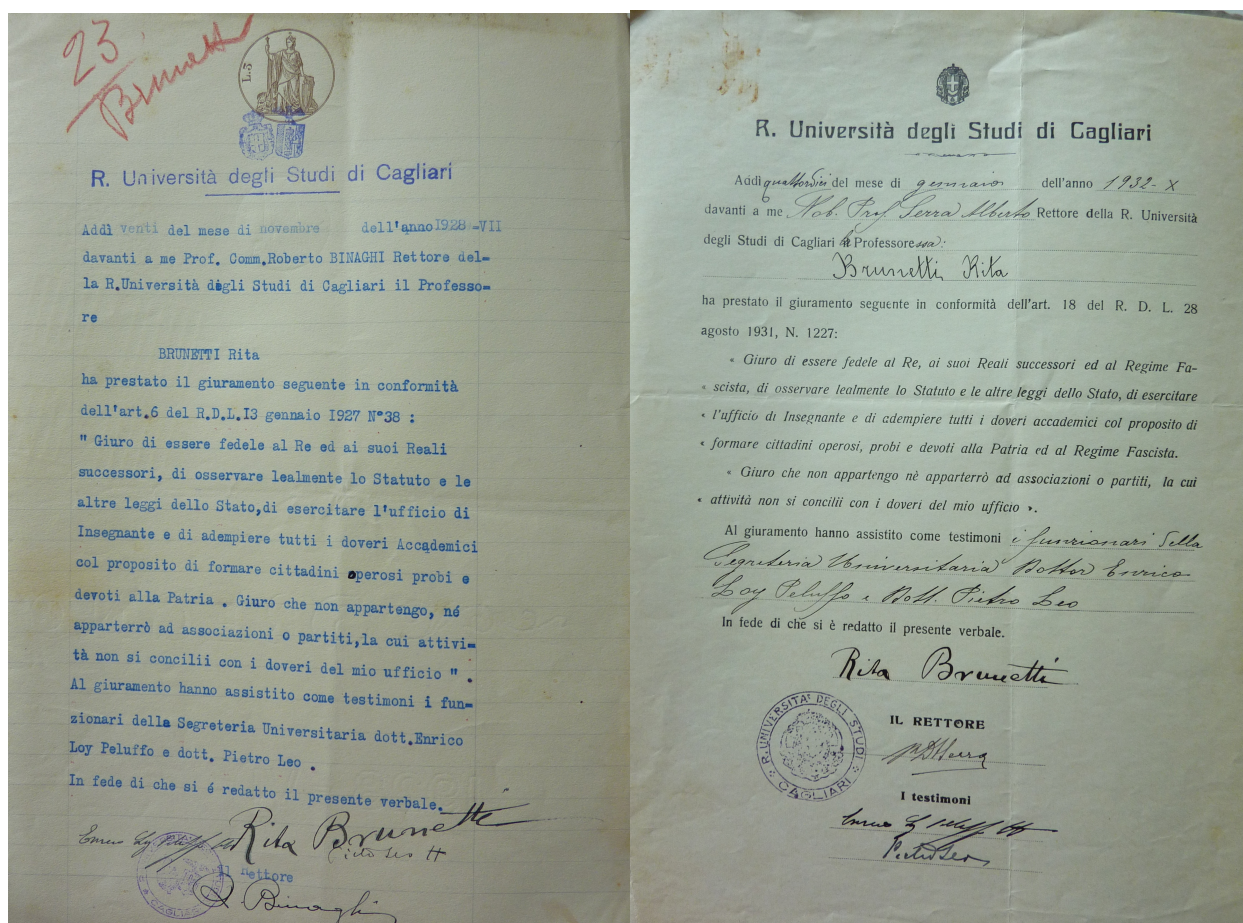 23
Brunetti
L.5
R. Università degli Studi di Cagliari
Addì venti del mese di novembre dell'anno 1928-VII
davanti a me Prof. Comm.Roberto BINAGHI Rettore del=
la R.Università degli Studi di Cagliari il Professo=
re
BRUNETTI Rita
ha prestato il giuramento seguente in conformità
dell'art.6 del R.D.L.I3 gennaio I927 N°38 :
" Giuro di essere fedele al Re ed ai suoi Reali
successori, di osservare lealmente lo Statuto e le
altre leggi dello Stato,di esercitare l'ufficio di
Insegnante e di adempiere tutti i doveri Accademici
col proposito di formare cittadini operosi probi e
devoti alla Patria . Giuro che non appartengo, né
apparterrò ad associazioni o partiti,la cui attivi=
tà non si concilii con i doveri del mio ufficio " .
Al giuramento hanno assistito come testimoni i fun=
zionari della Segreteria Universitaria dott.Enrico
Loy Peluffo e dott. Pietro Leo .
In fede di che si é redatto il presente verbale.
Rita Brunetti
Enrico Loy Peluffo
Pietro Leo
Il Rettore
CAGLIARI
R. Binaghi
R. Università degli Studi di Cagliari
Addì quattordici del mese di gennaio dell'anno 1932-X
davanti a me Nob. Prof. Serra Alberto Rettore della R. Università
degli Studi di Cagliari la Professoressa:
Brunetti Rita
ha prestato il giuramento seguente in conformità dell'art. 18 del R. D. L. 28
agosto 1931, N. 1227:
« Giuro di essere fedele al Re, ai suoi Reali successori ed al Regime Fa-
« scista, di osservare lealmente lo Statuto e le altre leggi dello Stato, di esercitare
« l'ufficio di Insegnante e di adempiere tutti i doveri accademici col proposito di
« formare cittadini operosi, probi e devoti alla Patria ed al Regime Fascista.
« Giuro che non appartengo nè apparterrò ad associazioni o partiti, la cui
« attività non si concilii con i doveri del mio ufficio ».
Al giuramento hanno assistito come testimoni i funzionari della
Segreteria Universitaria Dottor Enrico
Loy Peluffo e Dott. Pietro Leo
In fede di che si è redatto il presente verbale.
Rita Brunetti
R. UNIVERSITA' DEGLI STUDI
CAGLIARI
IL RETTORE
I testimoni
Enrico Loy Peluffo
Pietro Leo